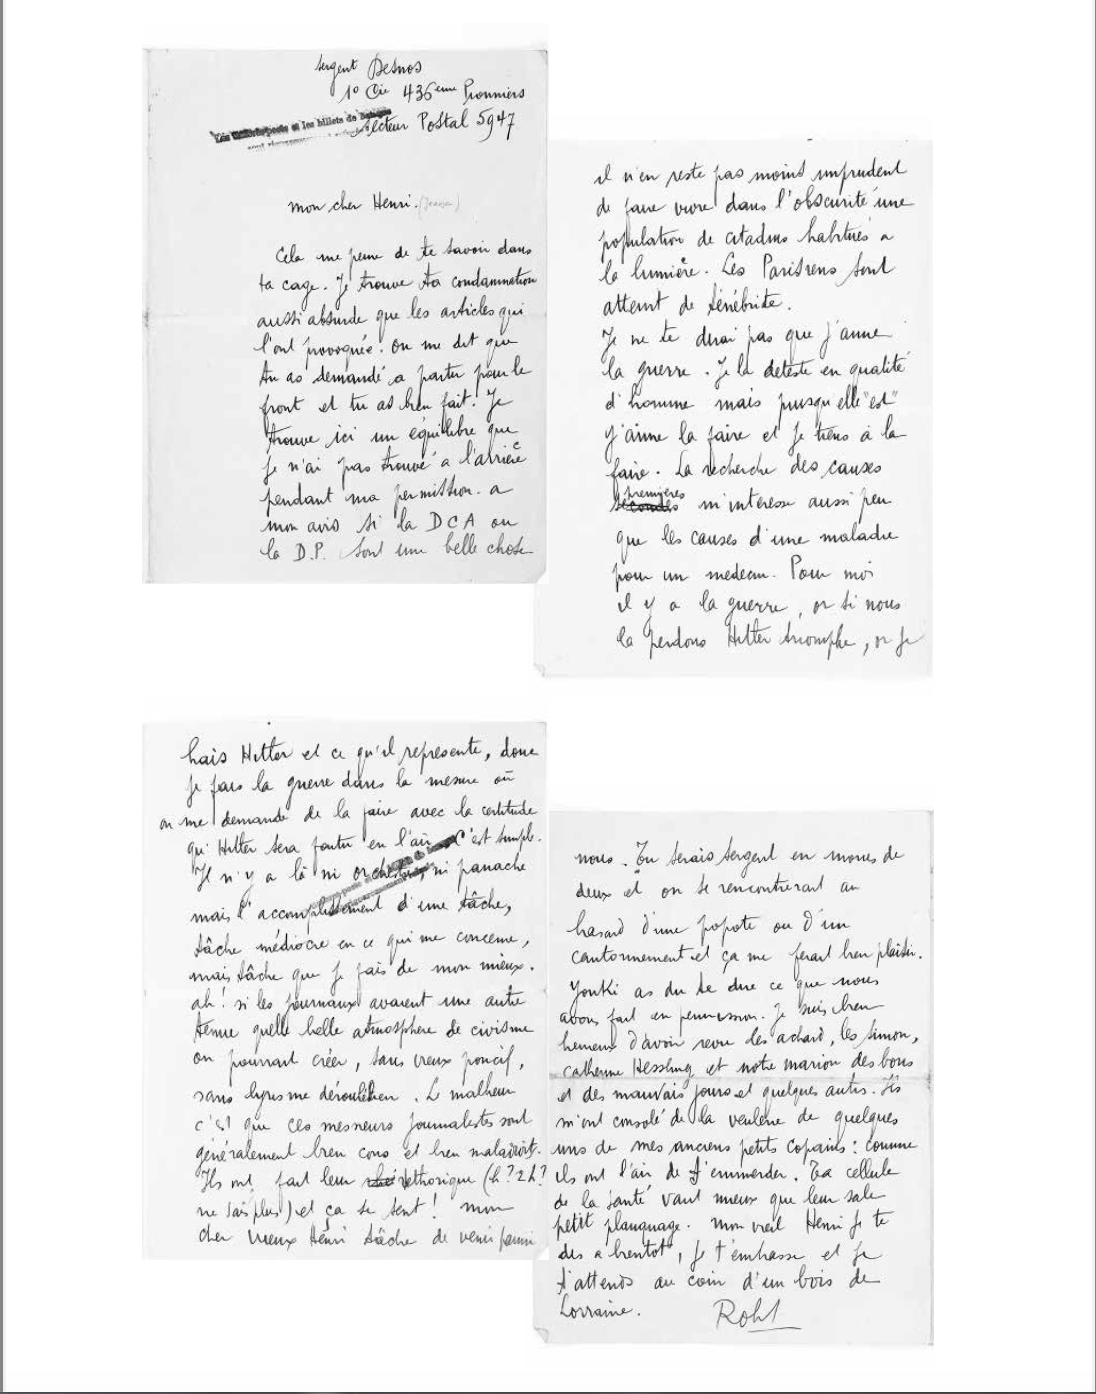 Sergent Desnos
1° Cie 436eme Pionniers
Secteur Postal 5947
et les billets de
mon cher Henri. (Jeanson)
Cela me peine de te savoir dans
ta cage. Je trouve ta condamnation
aussi absurde que les articles qui
l'ont provoquée. On me dit que
tu as demandé a partir pour le
front et tu as bien fait. Je
trouve ici un équilibre que
je n'ai pas trouvé a l'arrière
pendant ma permission. a
mon avis si la DCA ou
la D.P. sont une belle chose
il n'en reste pas moins imprudent
de faire vivre dans l'obscurité une
population de citadins habitués a
la lumière. Les Parisiens sont
atteint de ténébrite.
Je ne te dirai pas que j'aime
la guerre. Je la déteste en qualité
d'homme mais puisqu'elle "est"
j'aime la faire et je tiens à la
faire. La recherche des causes
premières
secondes m'intéresse aussi peu
que les causes d'une maladie
pour un medecin. Pour moi
il y a la guerre, or si nous
la perdons Hitler triomphe, or je
hais Hitler et ce qu'il represente, donc
je fais la guerre dans la mesure où
on me demande de la faire avec la certitude
qu' Hitler sera foutu en l'air. C'est simple.
Il n'y a là ni orchestre, ni panache
mais l'accomplissement d'une tâche,
tâche médiocre en ce qui me concerne,
mais tâche que je fais de mon mieux.
ah! si les journaux avaient une autre
tenue quelle belle atmosphère de civisme
on pourrait créer, sans vieux poncif,
sans lyrisme déroulédien. Le malheur
c'est que ces messieurs journalistes sont
généralement bien cons et bien maladroits.
Ils ont fait leur rethorique (h? 2h?
ne sais plus) et ça se sent! mon
cher vieux Henri tâche de venir parmi
nous. Tu serais sergent en moins de
deux et on se rencontrerait au
hasard d'une popote ou d'un
cantonnement et ça me ferait bien plaisir.
Youki as du te dire ce que nous
avons fait en permission. Je suis bien
heureux d'avoir revu les achard, les simon,
catherine Hessling et notre marion des bons
et des mauvais jours et quelques autres. Ils
m'ont consolé de la veulerie de quelques
uns de mes anciens petits copains: comme
ils ont l'air de s'emmerder. Ta cellule
de la santé vaut mieux que leur sale
petit planquage. Mon vieil Henri je te
dis a bientot, je t'embrasse et je
t'attends au coin d'un bois de
Lorraine. Robt